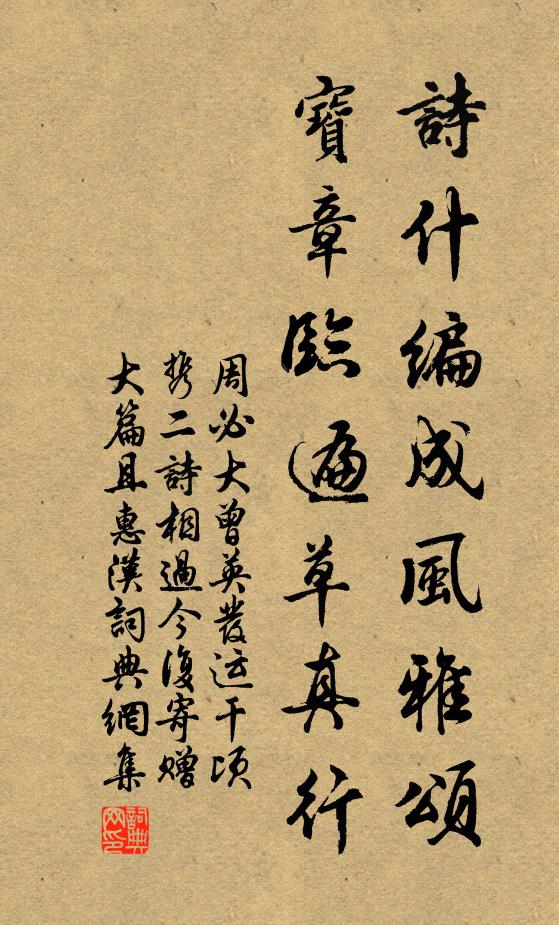 詩什編成風雅頌
寶章臨遍草真行
周必大曾英發運干頃
携二詩相過今復寄贈
大篇且惠漢詞典網集
詞典
网印